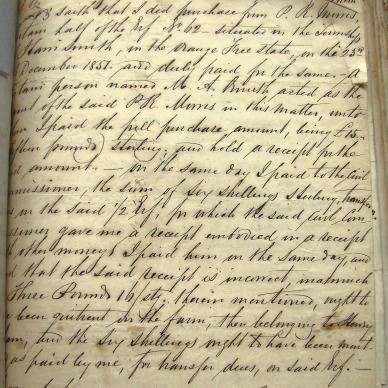 & 3 saith that I did purchase from P. R. Morris,
claim half of the Erf No. 62 — situated in the Township
Adam Smith, in the Orange Free State, on the 23rd
December 1851. and duly paid for the same. — A
certain person named M. A. Smith, acted as the
agent of the said P. R. Morris in this matter, unto
whom I paid the full purchase amount, being £15.
(fifteen pounds) Sterling; and hold a receipt for the
said amount. — On the same day I paid to the Civil
Commissioner, the sum of Six Shillings Sterling, transfer
dues on the said 1/2 Erf, for which the said Civil Com-
missioner gave me a receipt embodied in a receipt
for other moneys I paid him on the same day, and
said that the said receipt is incorrect, inasmuch
Three Pounds 16/ stg. therein mentioned, ought to
have been quitrent on the farm, then belonging to Henry
, and the Six Shillings ought to have been ment-
as paid by me, for transfer dues, on said Erf. —